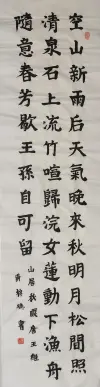 空山新雨后天氣晚來秋明月松間照
清泉石上流竹喧歸浣女蓮動下漁舟
隨意春芳歇王孫自可留
山居秋暝唐王維